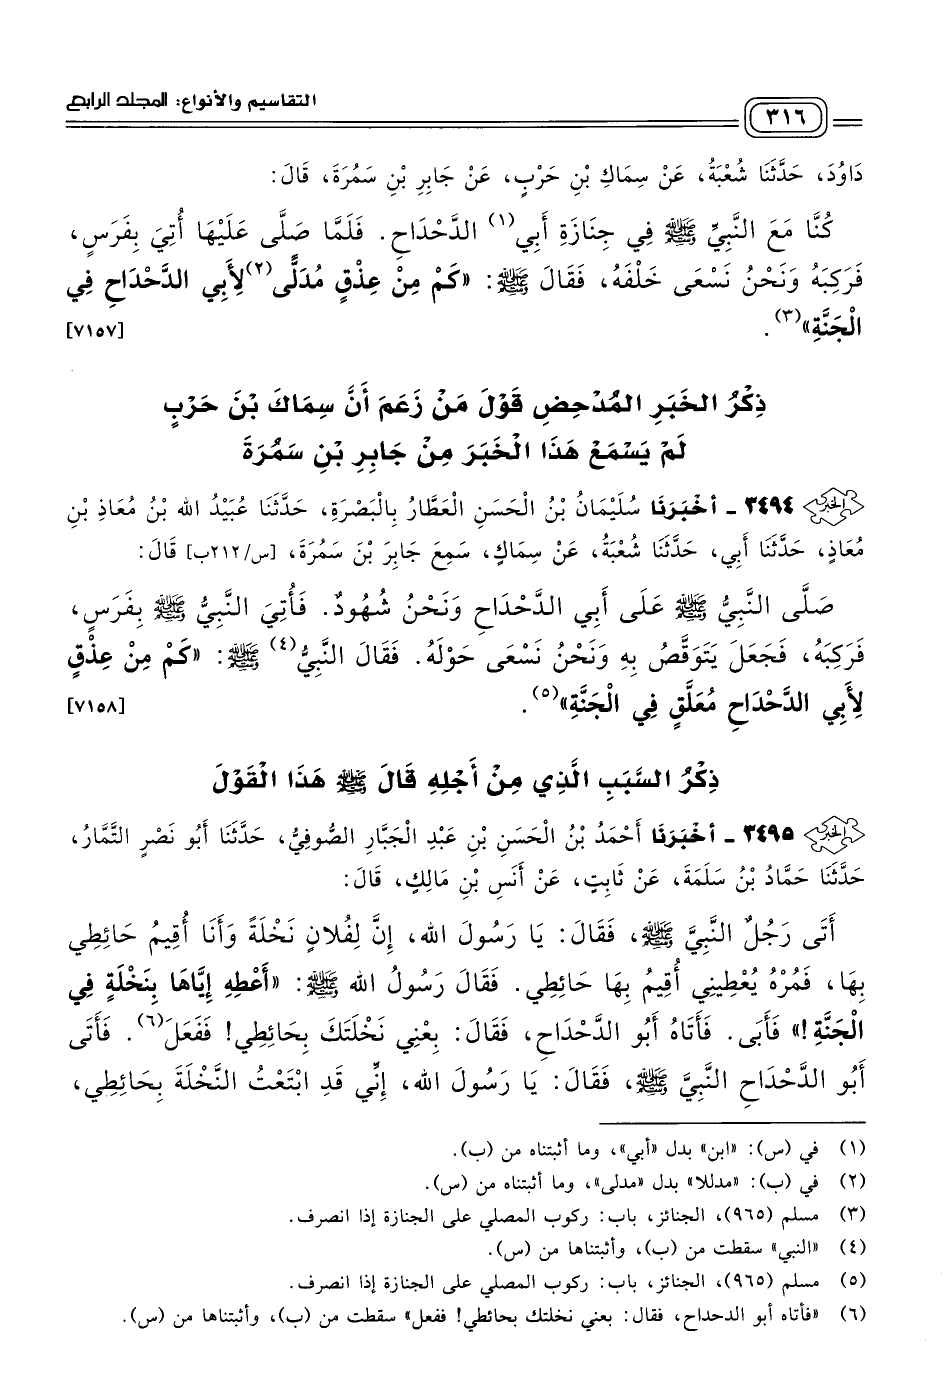 التقاسيم والأنواع: المجلد الرابع
٣١٦
دَاوُدَ، حَدَّثَنَا شُعْبَةُ، عَنْ سِمَاكِ بْنِ حَرْبٍ، عَنْ جَابِرِ بْنِ سَمُرَةَ، قَالَ:
كُنَّا مَعَ النَّبِيِّ ﷺ فِي جِنَازَةِ أَبِي(١) الدَّحْدَاحِ. فَلَمَّا صَلَّى عَلَيْهَا أُتِيَ بِفَرَسٍ،
فَرَكِبَهُ وَنَحْنُ نَسْعَى خَلْفَهُ، فَقَالَ ﷺ: «كَمْ مِنْ عِذْقٍ مُدَلًّى(٢) لِأَبِي الدَّحْدَاحِ فِي
الْجَنَّةِ»(٣). [٧١٥٧]
ذِكْرُ الخَبَرِ المُدْحِضِ قَوْلَ مَنْ زَعَمَ أَنَّ سِمَاكَ بْنَ حَرْبٍ
لَمْ يَسْمَعْ هَذَا الْخَبَرَ مِنْ جَابِرِ بْنِ سَمُرَةَ
٣٤٩٤ - أَخْبَرَنَا سُلَيْمَانُ بْنُ الْحَسَنِ الْعَطَّارُ بِالْبَصْرَةِ، حَدَّثَنَا عُبَيْدُ الله بْنُ مُعَاذِ بْنِ
مُعَاذٍ، حَدَّثَنَا أَبِي، حَدَّثَنَا شُعْبَةُ، عَنْ سِمَاكٍ، سَمِعَ جَابِرَ بْنَ سَمُرَةَ، [س/٢١٢ب] قَالَ:
صَلَّى النَّبِيُّ ﷺ عَلَى أَبِي الدَّحْدَاحِ وَنَحْنُ شُهُودٌ. فَأُتِيَ النَّبِيُّ ﷺ بِفَرَسٍ،
فَرَكِبَهُ، فَجَعَلَ يَتَوَقَّصُ بِهِ وَنَحْنُ نَسْعَى حَوْلَهُ. فَقَالَ النَّبِيُّ(٤) ﷺ: «كَمْ مِنْ عِذْقٍ
لِأَبِي الدَّحْدَاحِ مُعَلَّقٍ فِي الْجَنَّةِ»(٥). [٧١٥٨]
ذِكْرُ السَّبَبِ الَّذِي مِنْ أَجْلِهِ قَالَ ﷺ هَذَا الْقَوْلَ
٣٤٩٥ - أَخْبَرَنَا أَحْمَدُ بْنُ الْحَسَنِ بْنِ عَبْدِ الْجَبَّارِ الصُّوفِيُّ، حَدَّثَنَا أَبُو نَصْرٍ التَّمَّارُ،
حَدَّثَنَا حَمَّادُ بْنُ سَلَمَةَ، عَنْ ثَابِتٍ، عَنْ أَنَسِ بْنِ مَالِكٍ، قَالَ:
أَتَى رَجُلٌ النَّبِيَّ ﷺ، فَقَالَ: يَا رَسُولَ الله، إِنَّ لِفُلَانٍ نَخْلَةً وَأَنَا أُقِيمُ حَائِطِي
بِهَا، فَمُرْهُ يُعْطِينِي أُقِيمُ بِهَا حَائِطِي. فَقَالَ رَسُولُ الله ﷺ: «أَعْطِهِ إِيَّاهَا بِنَخْلَةٍ فِي
الْجَنَّةِ!» فَأَبَى. فَأَتَاهُ أَبُو الدَّحْدَاحِ، فَقَالَ: بِعْنِي نَخْلَتَكَ بِحَائِطِي! فَفَعَلَ(٦). فَأَتَى
أَبُو الدَّحْدَاحِ النَّبِيَّ ﷺ، فَقَالَ: يَا رَسُولَ الله، إِنِّي قَدِ ابْتَعْتُ النَّخْلَةَ بِحَائِطِي،
(١) في (س): «ابن» بدل «أبي»، وما أثبتناه من (ب).
(٢) في (ب): «مدللا» بدل «مدلى»، وما أثبتناه من (س).
(٣) مسلم (٩٦٥)، الجنائز، باب: ركوب المصلي على الجنازة إذا انصرف.
(٤) «النبي» سقطت من (ب)، وأثبتناها من (س).
(٥) مسلم (٩٦٥)، الجنائز، باب: ركوب المصلي على الجنازة إذا انصرف.
(٦) «فأتاه أبو الدحداح، فقال: بعني نخلتك بحائطي! ففعل» سقطت من (ب)، وأثبتناها من (س).